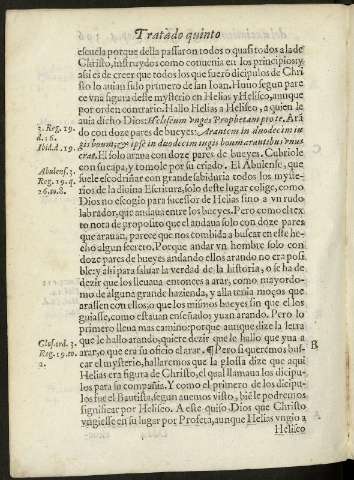 Tratado quinto
escuela porque della passaron todos o quasi todos a la de
Christo, instruydos como conuenia en los principios: y
assi es de creer que todos los que fuerõ dicipulos de Chri
sto lo auian sido primero de san Ioan. Huuo segun pare
ce vna figura deste mysterio en Helias y Heliseo, aunque
por orden contrario. Hallo Helias a Heliseo, a quien le
auia dicho Dios: Heliseum vnges Prophetam pro te. Ará
3. Reg. 19.
d. 16.
Ibid. d. 19.
do con doze pares de bueyes: Arantem in duodecim iu
gis boum, & ipse in duodecim iugis boum arantibus vnus
erat. El solo araua con doze pares de bueyes. Cubriole
con su capa, y tomole por su criado. El Abulense, que
Abulens. 3.
Reg. 19. q.
26. 10. 8.
suele escodriñar con grande sabiduria todos los myste-
rios de la diuina Escritura, solo deste lugar colige, como
Dios no escogio para sucessor de Helias sino a vn rudo
labrador, que andaua entre los bueyes. Pero como el tex
to nota de proposito que el andaua solo con doze pares
que arauan, parece que nos combida a buscar en este he-
cho algun secreto. Porque andar vn hombre solo con
doze pares de bueyes andando ellos arando no era possi
ble: y assi para saluar la verdad de la historia, o se ha de
dezir que los lleuaua entonces a arar, como mayordo-
mo de alguna grande hazienda, y alla tenia moços que
arassen con ellos: o que los mismos bueyes sin que el los
guiasse, como estauan enseñados yuan arando. Pero lo
primero lleua mas camino: porque aunque dize la letra
que le hallo arando, quiere dezir que le hallo que yua a
Glos. ord. 3.
Reg. 19. to.
2.
arar, o que era su oficio el arar. ¶ Pero si queremos bus-
B
car el mysterio, hallaremos que la glossa dize que aqui
Helias era figura de Christo, el qual llamaua los dicipu-
los para su compañia. Y como el primero de los dicipu-
los fue el Bautista, segun auemos visto, biẽ le podremos
significar por Heliseo. A este quiso Dios que Christo
vngiesse en su lugar por Profeta, aunque Helias vngio a
Heliseo